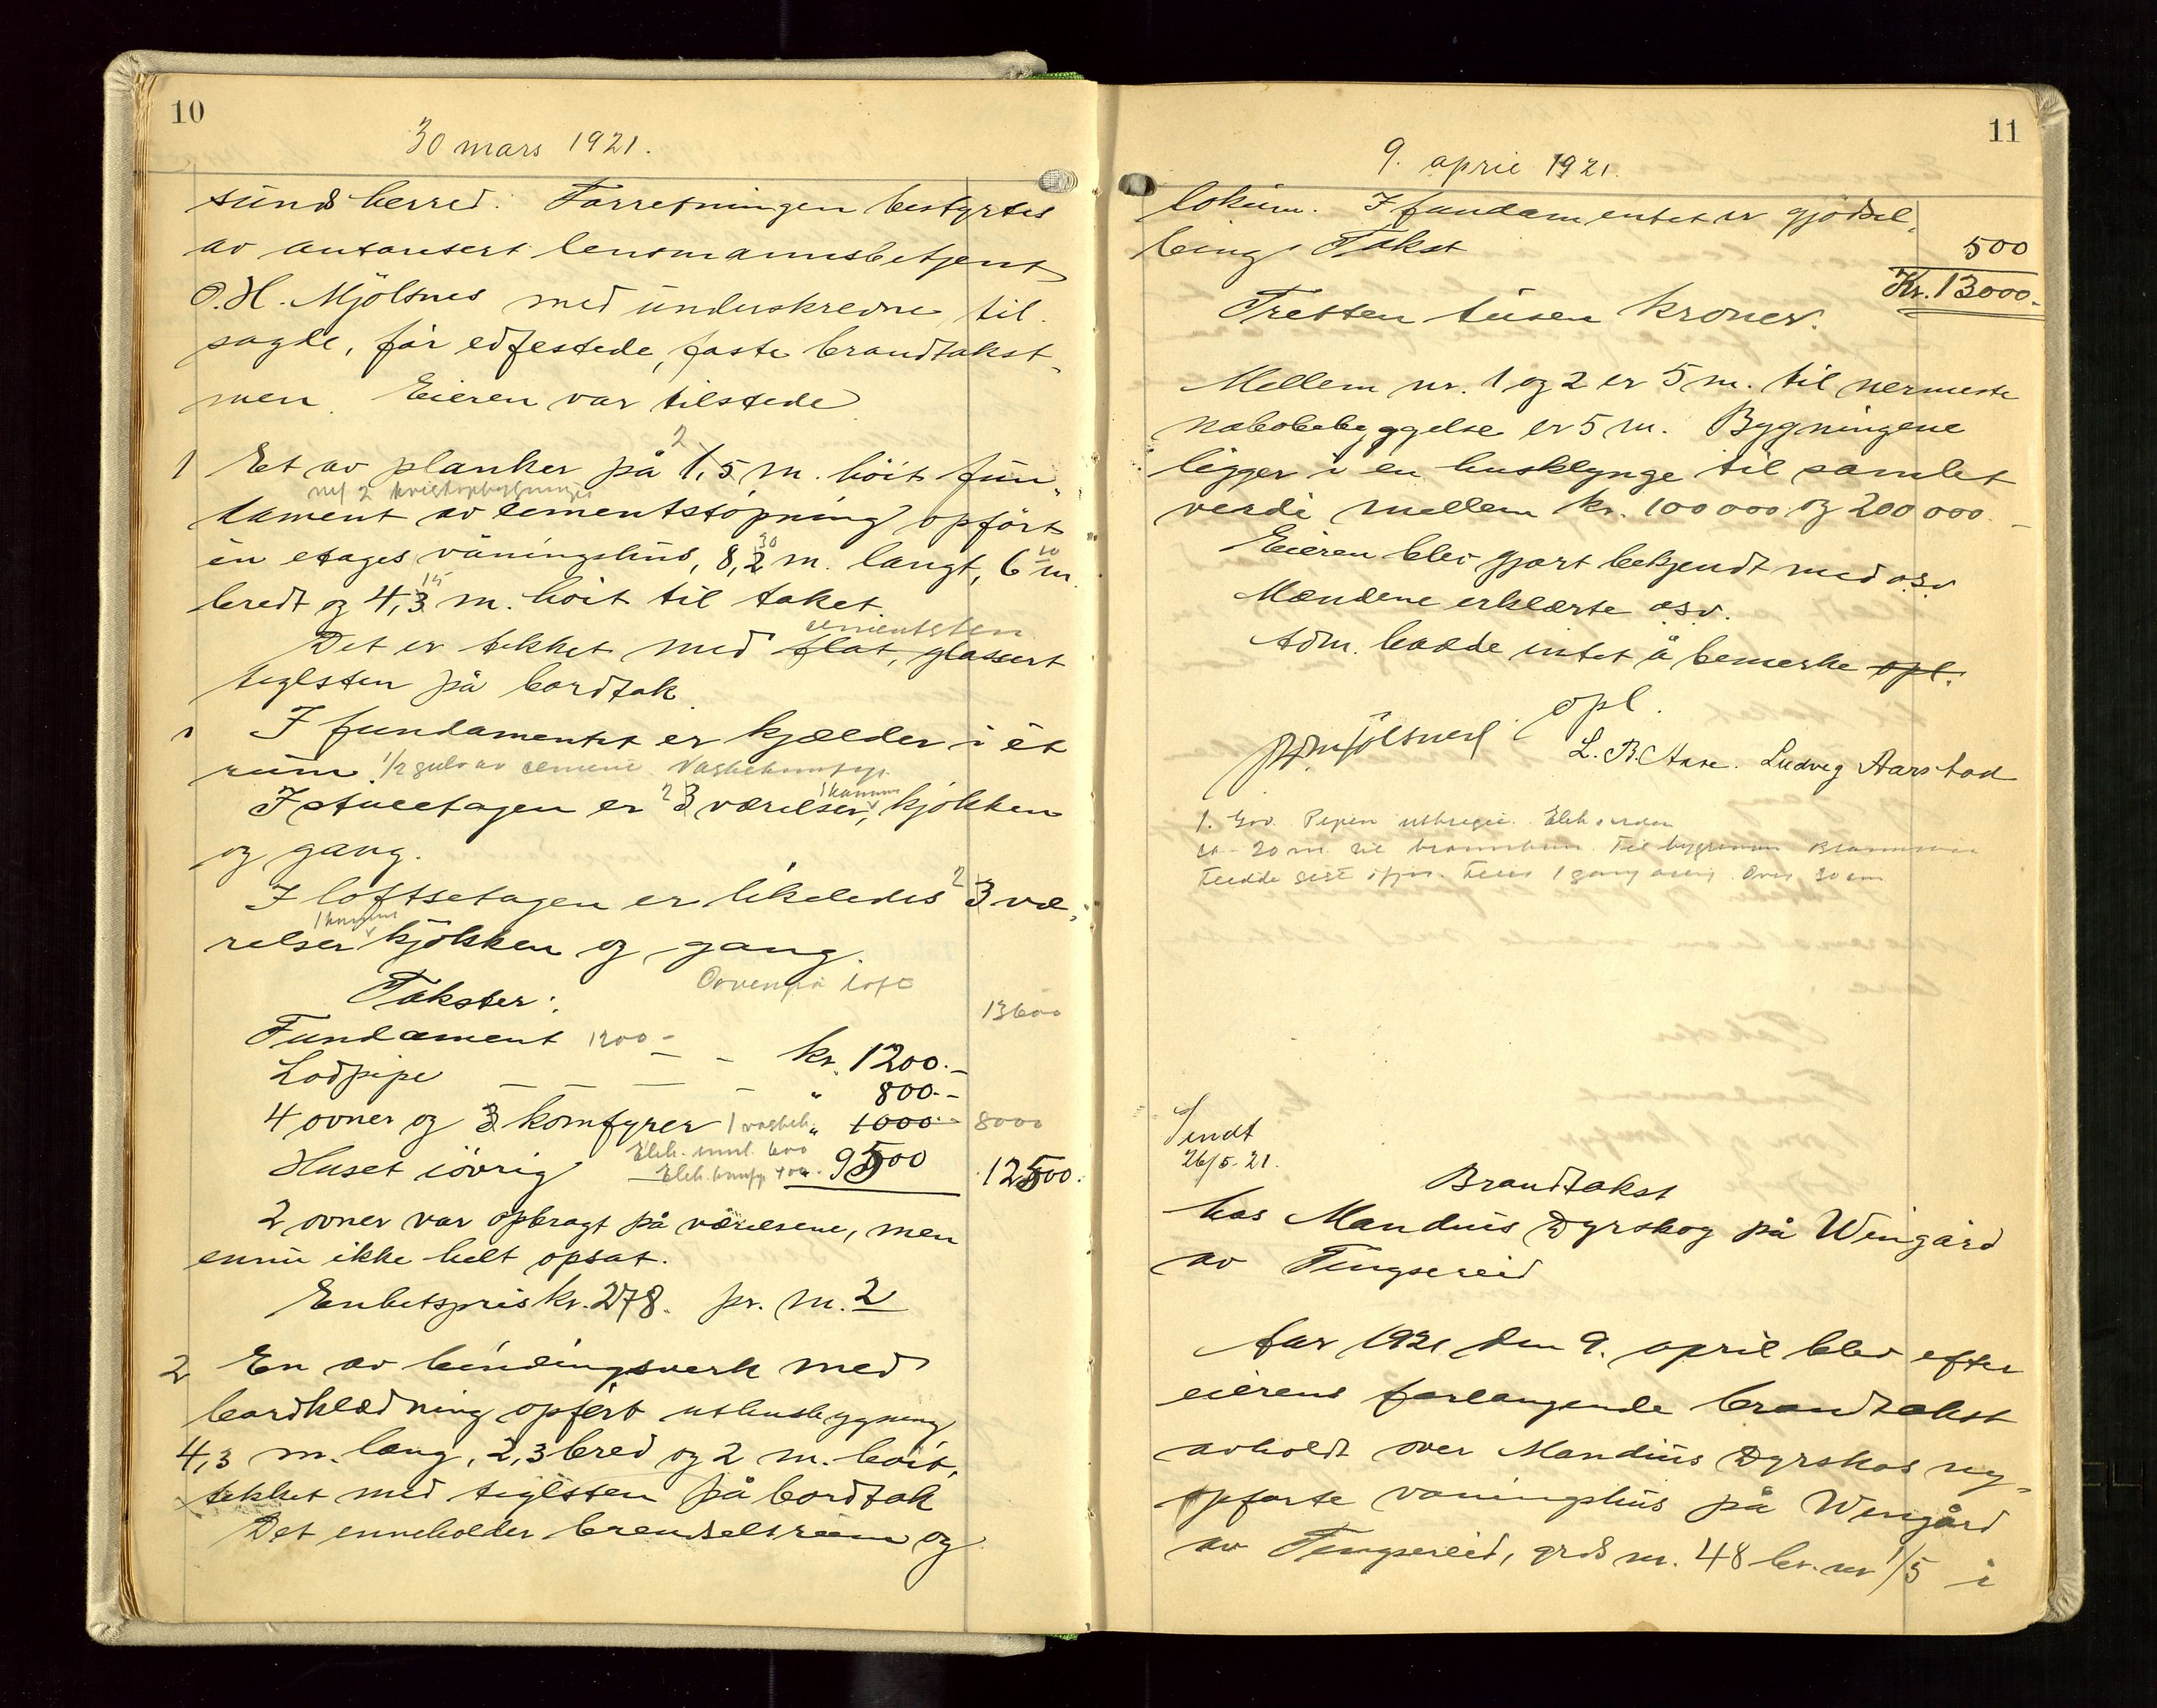 10
30 mars 1921.
sunds herred. Forretningen bestyrtes
av autorisert lensmannsbetjent
O. H. Mjölsnes med underskrevne, til
sagde, før edfestede, faste brandtakst
men. Eieren var tilstede
2
1 Et av planker på 1,5 m. höit fun-
med 2
dament av sementstøpning opført
30 10
en etages våningshus, 8,2 m. langt, 6 m.
15
bredt og 4,3 m. höit til taket.
cementsten
Det er tekket med flat, glassert
teglsten på bordtak.
I fundamentet er kjælder i et
rum. 1/2 gulv av cement
2 1 kammer
I stueetagen er 3 værelser, kjökken
og gang.
2
I loftsetagen er likeledes 3 væ-
1 kammer
relser kjökken og gang.
Takster: Ovnen på loft
13600
Fundament 1200 - - - kr. 1200.-
Lodpipe - - - - " 800.-
4 ovner og 3 komfyrer 1 " 1000.- 8000
Elek. 600
Huset iövrig Elek. komf. 400. 9500 12500.
2 ovner var opbragt på værelsene, men
ennu ikke helt opsat.
Enhetspris kr. 278. pr. m. 2
2 En av bindingsverk med
bordklædning opfört uthusbygning
4,3 m. lang, 2,3 bred og 2 m. höit,
tekket med teglsten på bordtak
Det inneholder brendselsrum og
11
9. april 1921.
lokum. I fundamentet er gjödsel-
bing. Takst 500
Kr. 13000.-
Tretten tusen kroner.
Mellem nr. 1 og 2 er 5 m. til nermeste
nabobebyggelse er 5 m. Bygningene
ligger i en husklynge til samlet
verdi mellem kr. 100 000 og 200 000.-
Eieren blev gjort bekjendt med osv
Mændene erklærte osv.
Adm. hadde intet å bemerke opl.
opl.
Mjölsnes L. B. Aase. Ludvig Aarstad
1. Pipen
ca. 20 m. til
1 gang Over 30 cm
Sendt
26/5-21.
Brandtakst
hos Mandius Dyrskog på Wengård
av Tengsereid
Aar 1921 den 9. april blev efter
eierens forlangende brandtakst
avholdt over Mandius Dyrskos ny-
opførte våningshus på Wengård
av Tengsereid, grds nr. 48 br. nr 1/5 i